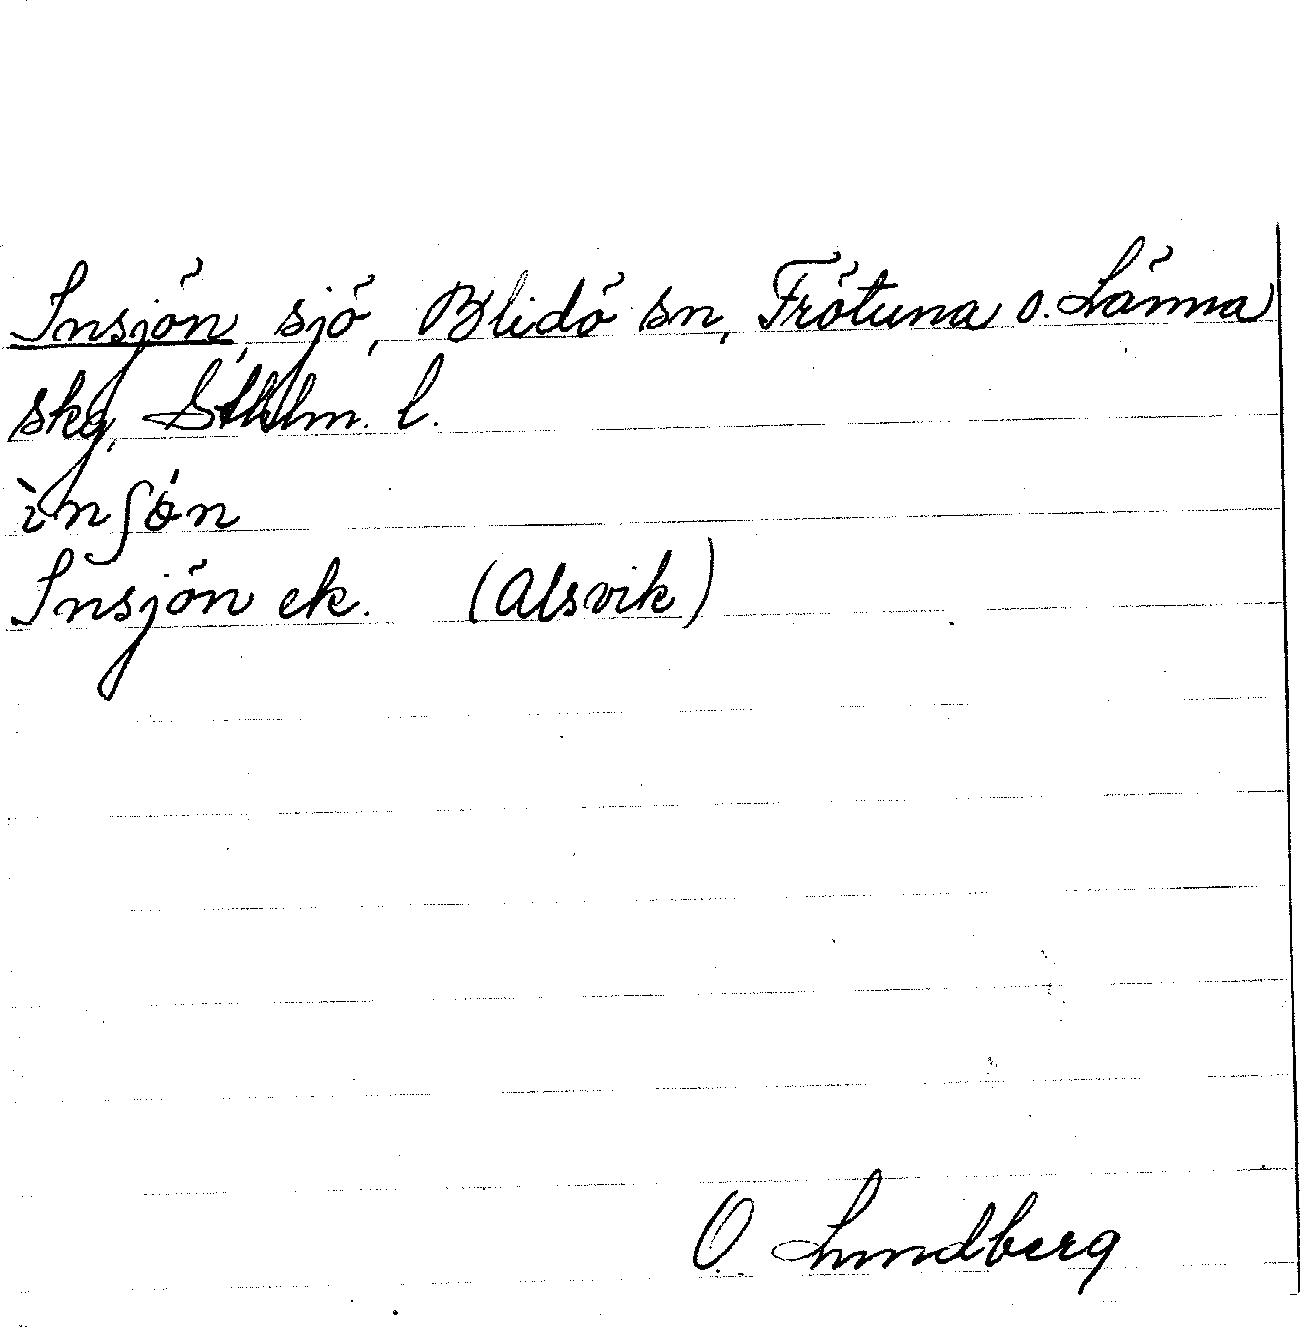 Insjön, sjö, Blidö sn, Frötuna o. Länna
skg, Sthlm. l.
ìnʃǿn
Insjön ek. (Alsvik)
O. Lundberg